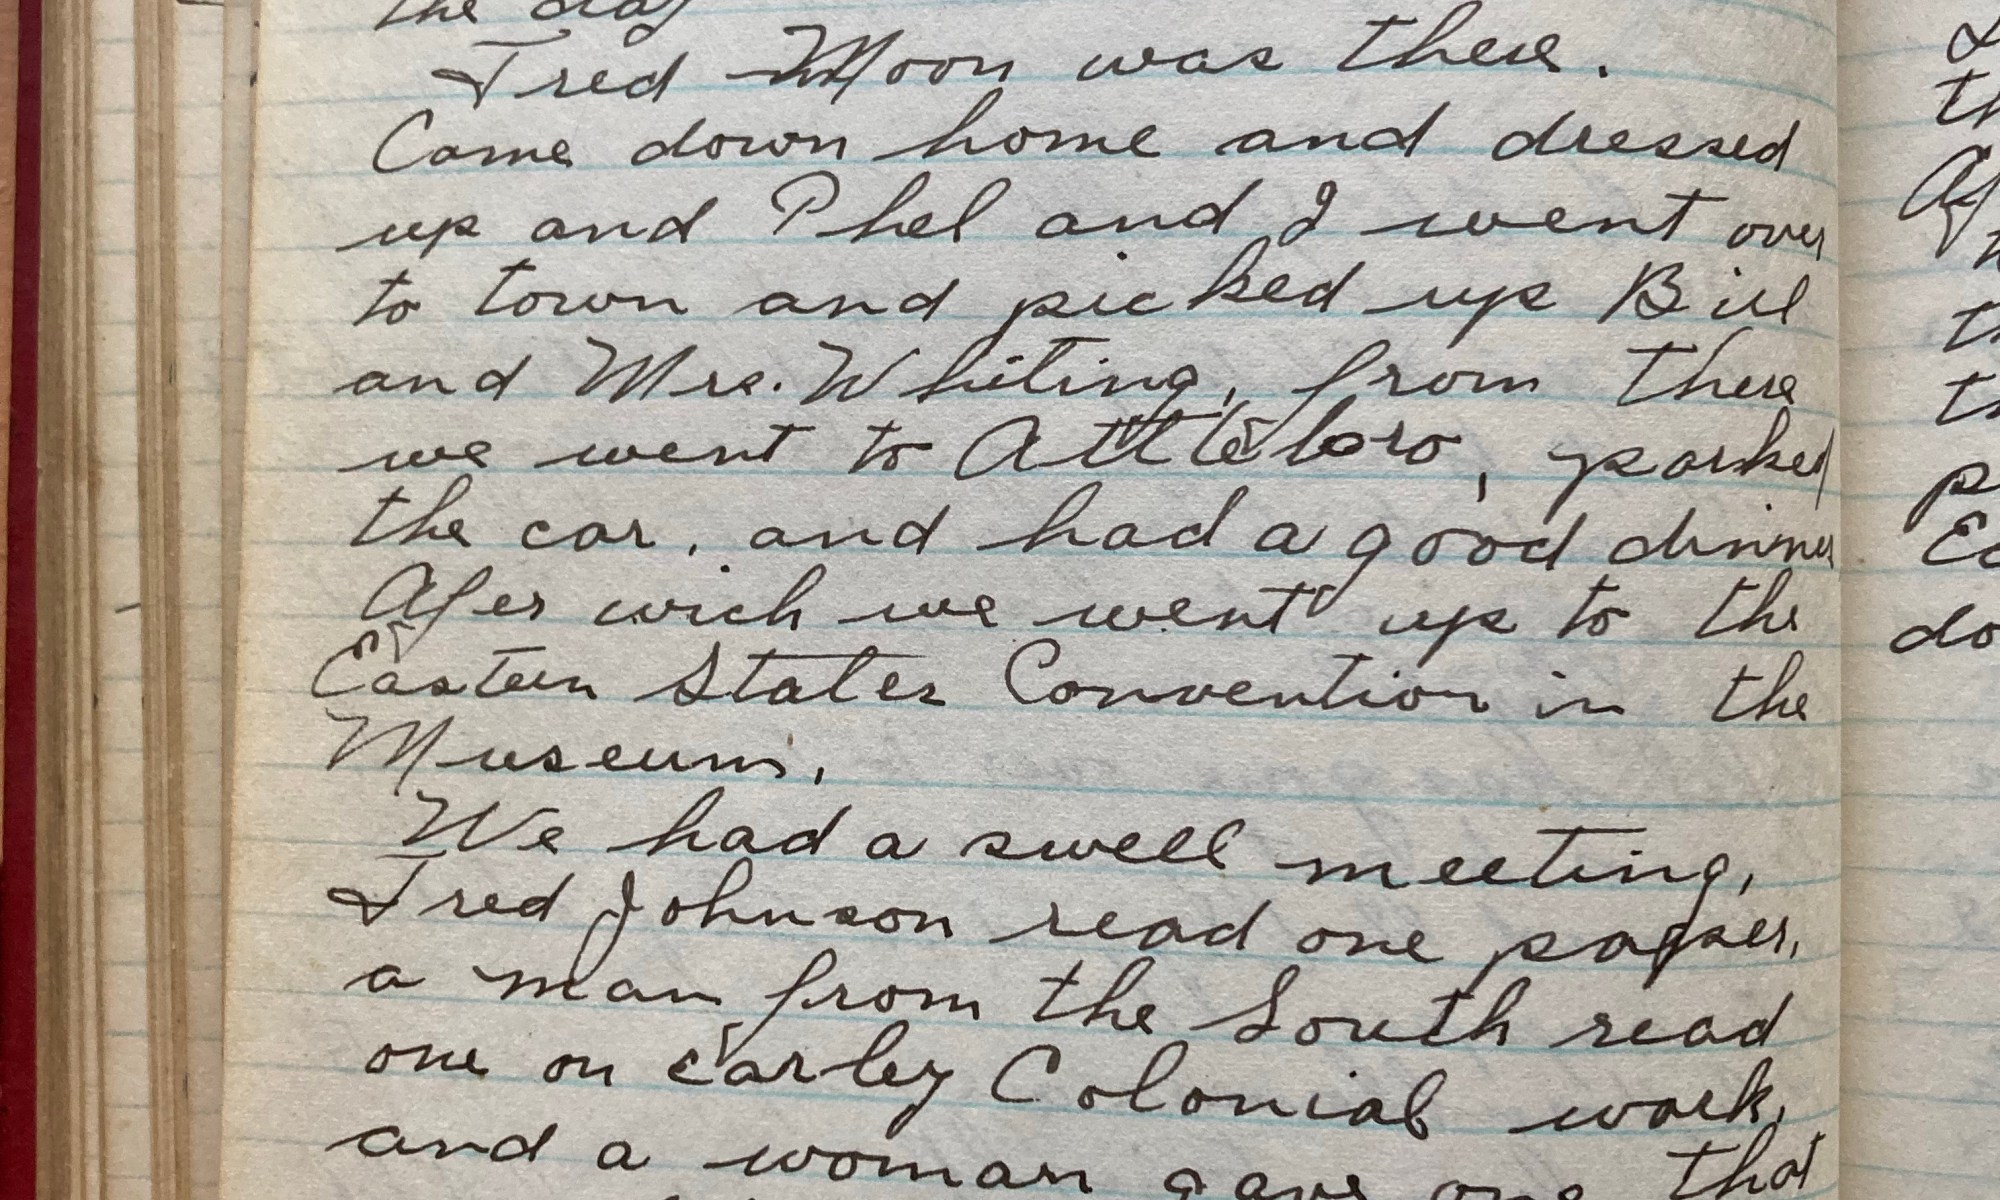 the day
Fred Moon was there.
Came down home and dressed
up and Phel and I went over
to town and picked up Bill
and Mrs. Whiting, from there
we went to Attleboro, parked
the car, and had a good dinner
Afer wich we went up to the
Eastern States Convention in the
Museum.
We had a swell meeting,
Fred Johnson read one paper,
a man from the South read
one on earley Colonial work,
and a woman gave one that